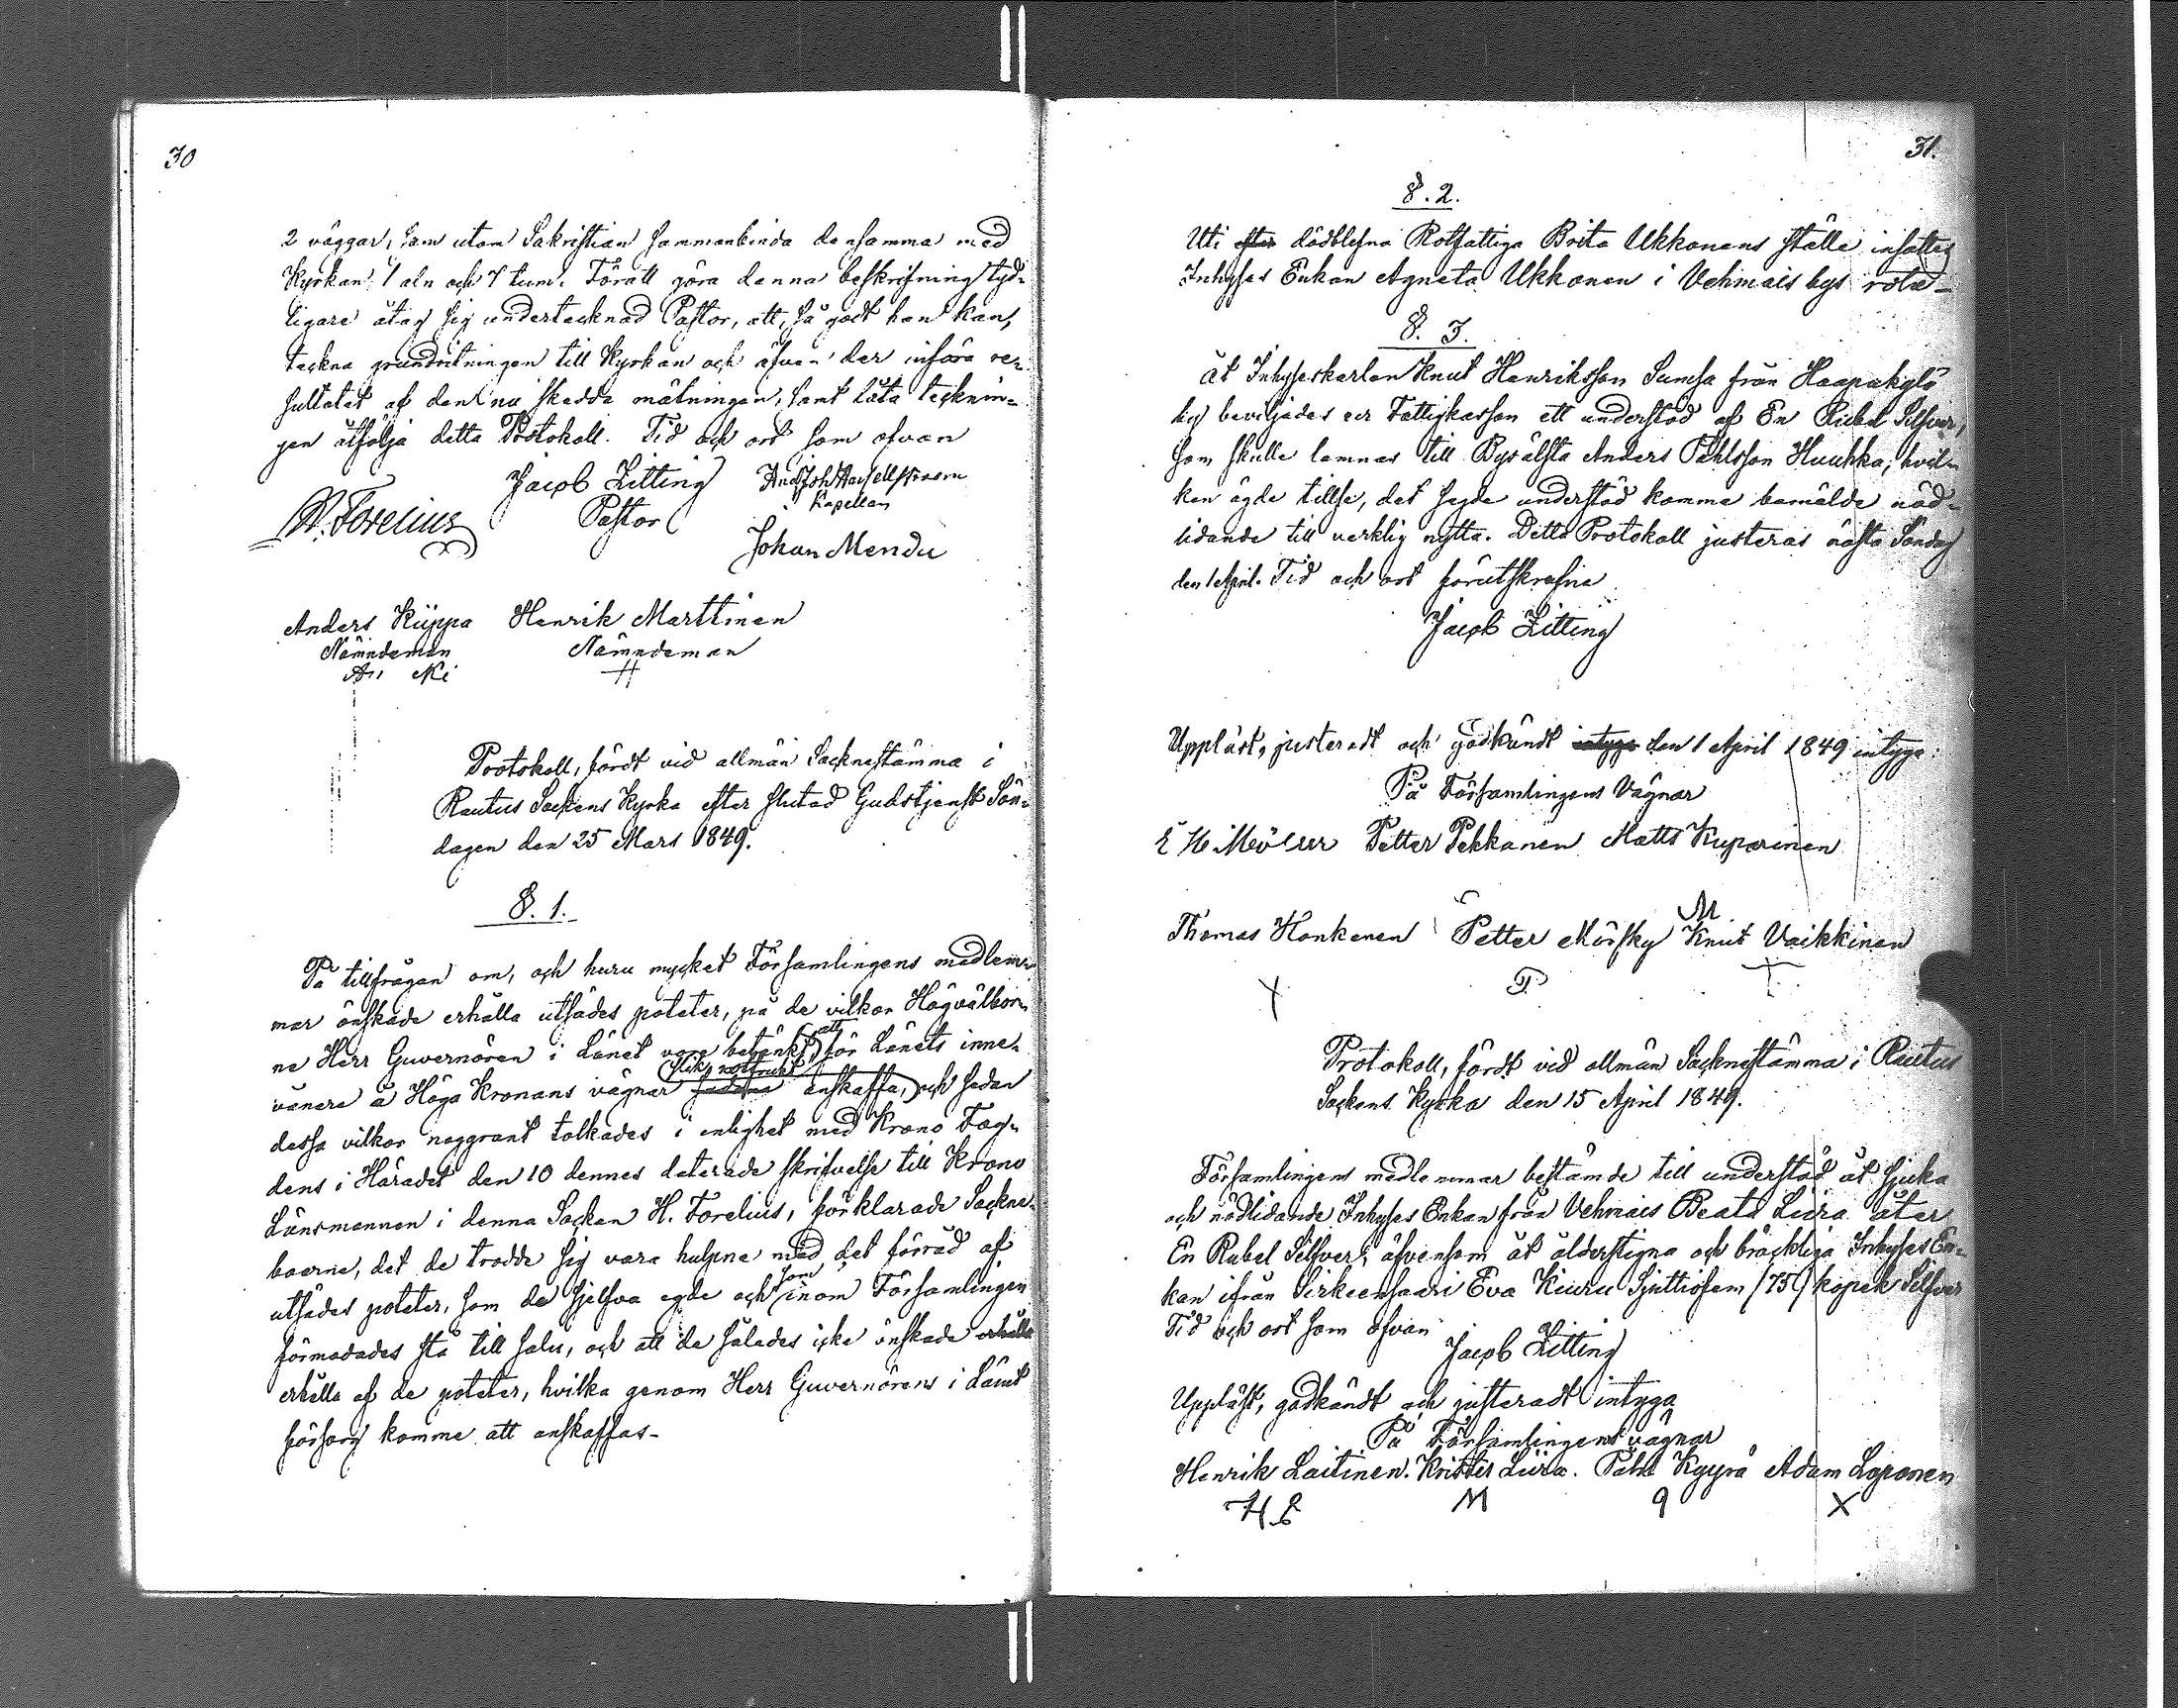 30
2 väggar, som utom Sakristian sammanbinda densamma med
Kyrkan 1 aln och 7 tum. Föratt göra denna beskrifning tyd-
ligare åtog sig undertecknad Pastor, att, så godt han kan,
teckna grundritningen till Kyrkan och äfven der införa re-
sultatet af den nu skedda mätningen, samt låta tecknin-
gen åtfölja detta Protokoll. Tid och ort som ofvan
Jacob Zitting
Pastor
Kapellan
H. Forelius
Johan Mendu
Anders Kiippa Henrik Marttinen
Nämndeman Nämndeman
Protokoll, fördt vid allmän Socknestämma i
Rautus Sockens Kyrka efter slutad Gudstjenst Sön-
dagen den 25 Mars 1849.
§. 1.
På tillfrågan om, och huru mycket Församlingens medlem-
mar önskade erhålla utsädes poteter, på de vilkor Högvälbor-
ne Herr Guvernören i Länet vore betänkt att för Länets inne-
vånare å Höga Kronans vägnar slik rotfrukt anskaffa, och sedan
dessa vilkor noggrant tolkades i enlighet med Krono Fog-
dens i Häradet den 10 dennes daterade skrifvelse till Krono
Länsmannen i denna Socken H. Forelius, förklarade Sockne-
boerne, det de trodde sig vara hulpne med det förråd af
utsädes poteter, som de sjelfva egde och som inom Församlingen
förmodades stå till salu, och att de således icke önskade erhålla
erhålla af de poteter, hvilka genom Herr Guvernörens i Länet
försorg komme att anskaffas-
31.
§. 2.
Uti efter dödblefna Rotfattiga Brita Ukkonens ställe insattes
Inhyses Enkan Agneta Ukkonen i Vehmais bys rote-
§. 3.
Åt Inhyseskarlen Knut Henriksson Sumsa från Haapakylä
by beviljades ur Fattigkassan ett understöd af En Rubel Silfver,
som skulle lemnas till Byälsta Anders Påhlsson Huuhka, hvil-
ken ägde tillse, det sagde understöd komme bemälde nöd-
lidande till verklig nytta. Detta Protokoll justeras nästa Söndag
den 1 April. Tid och ort förutskrefne
Jacob Zitting
Uppläst, justeradt och godkändt intyga den 1 April 1849 intyga:
På Församlingens Vägnar
Petter Pekkanen Matts Kuparinen
M
Thomas Honkanen Petter Mörsky Knut Vaikkinen
P
Protokoll, fördt vid allmän Socknestämma i Rautus
Sockens Kyrka den 15 April 1849.
Församlingens medlemmar bestämde till understöd åt sjuka
och nödlidande Inhyses Enkan från Vehmais Beata Liira åter
En Rubel Silfver, äfvensom åt ålderstigna och bräckliga Inhyses En-
kan ifrån Sirkeensaari Eva Kiuru Sjuttiofem /75/ kopek Silfver
Tid och ort som ofvan
Jacob Zitting
Uppläst, godkändt och justeradt intyga
På Församlingens vägnar
Henrik Laitinen. Krister Liira. Påhl Kyyrä Adam Loponen
M 9 X